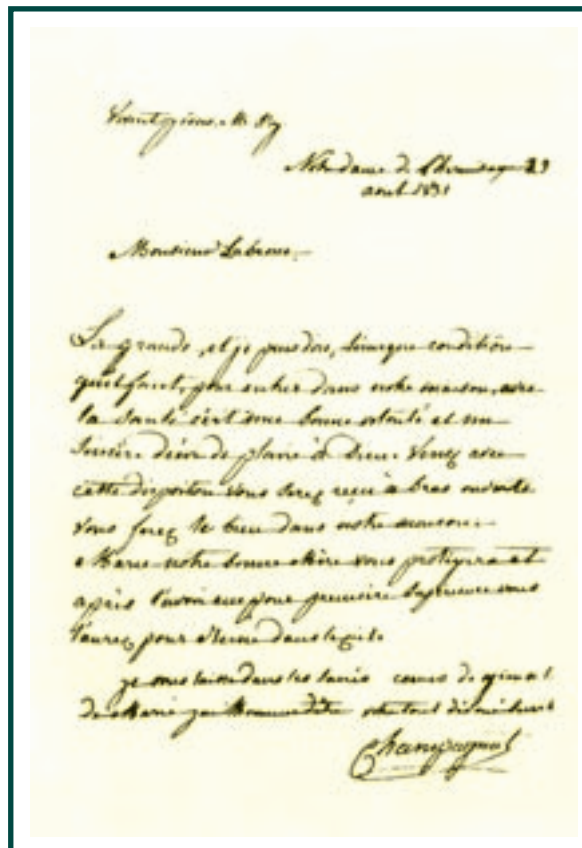 Notre dame de l'hermitage 29
aout 1831
Monsieur Labrosse
La grande, et je puis dire, l'unique condition
qu'il faut, pour entrer dans notre maison, avec
la santé c'est une bonne volonté et un
sincère désir de plaire à Dieu. Venez avec
cette disposition vous serez reçu à bras ouverts
vous ferez le bien dans notre maison.
Marie notre bonne Mère vous protégera et
après l'avoir eue pour première Supérieure vous
l'aurez pour Reine dans le ciel.
je vous laisse dans les sacrés coeurs de
de Marie votre tout dévoué
Champagnat